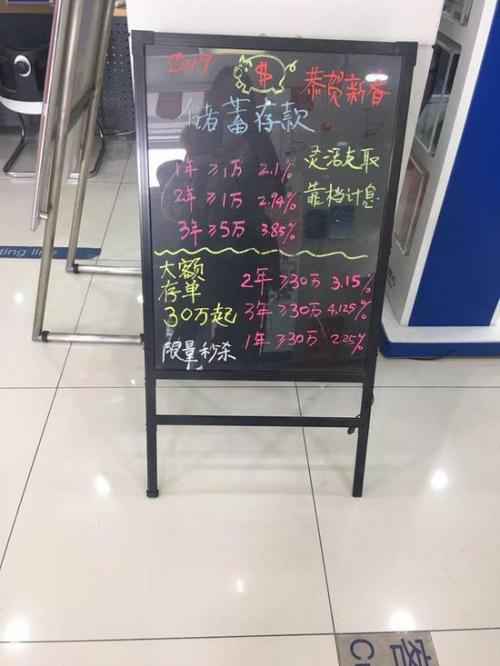 2019
$
恭贺新春
储蓄存款
灵活支取
靠档计息
1年 ≥1万 2.1%
2年 ≥1万 2.94%
3年 ≥5万 3.85%
大额
存单
30万起
限量秒杀
2年 ≥30万 3.15%
3年 ≥30万 4.125%
1年 ≥30万 2.25%
ting line
客
C